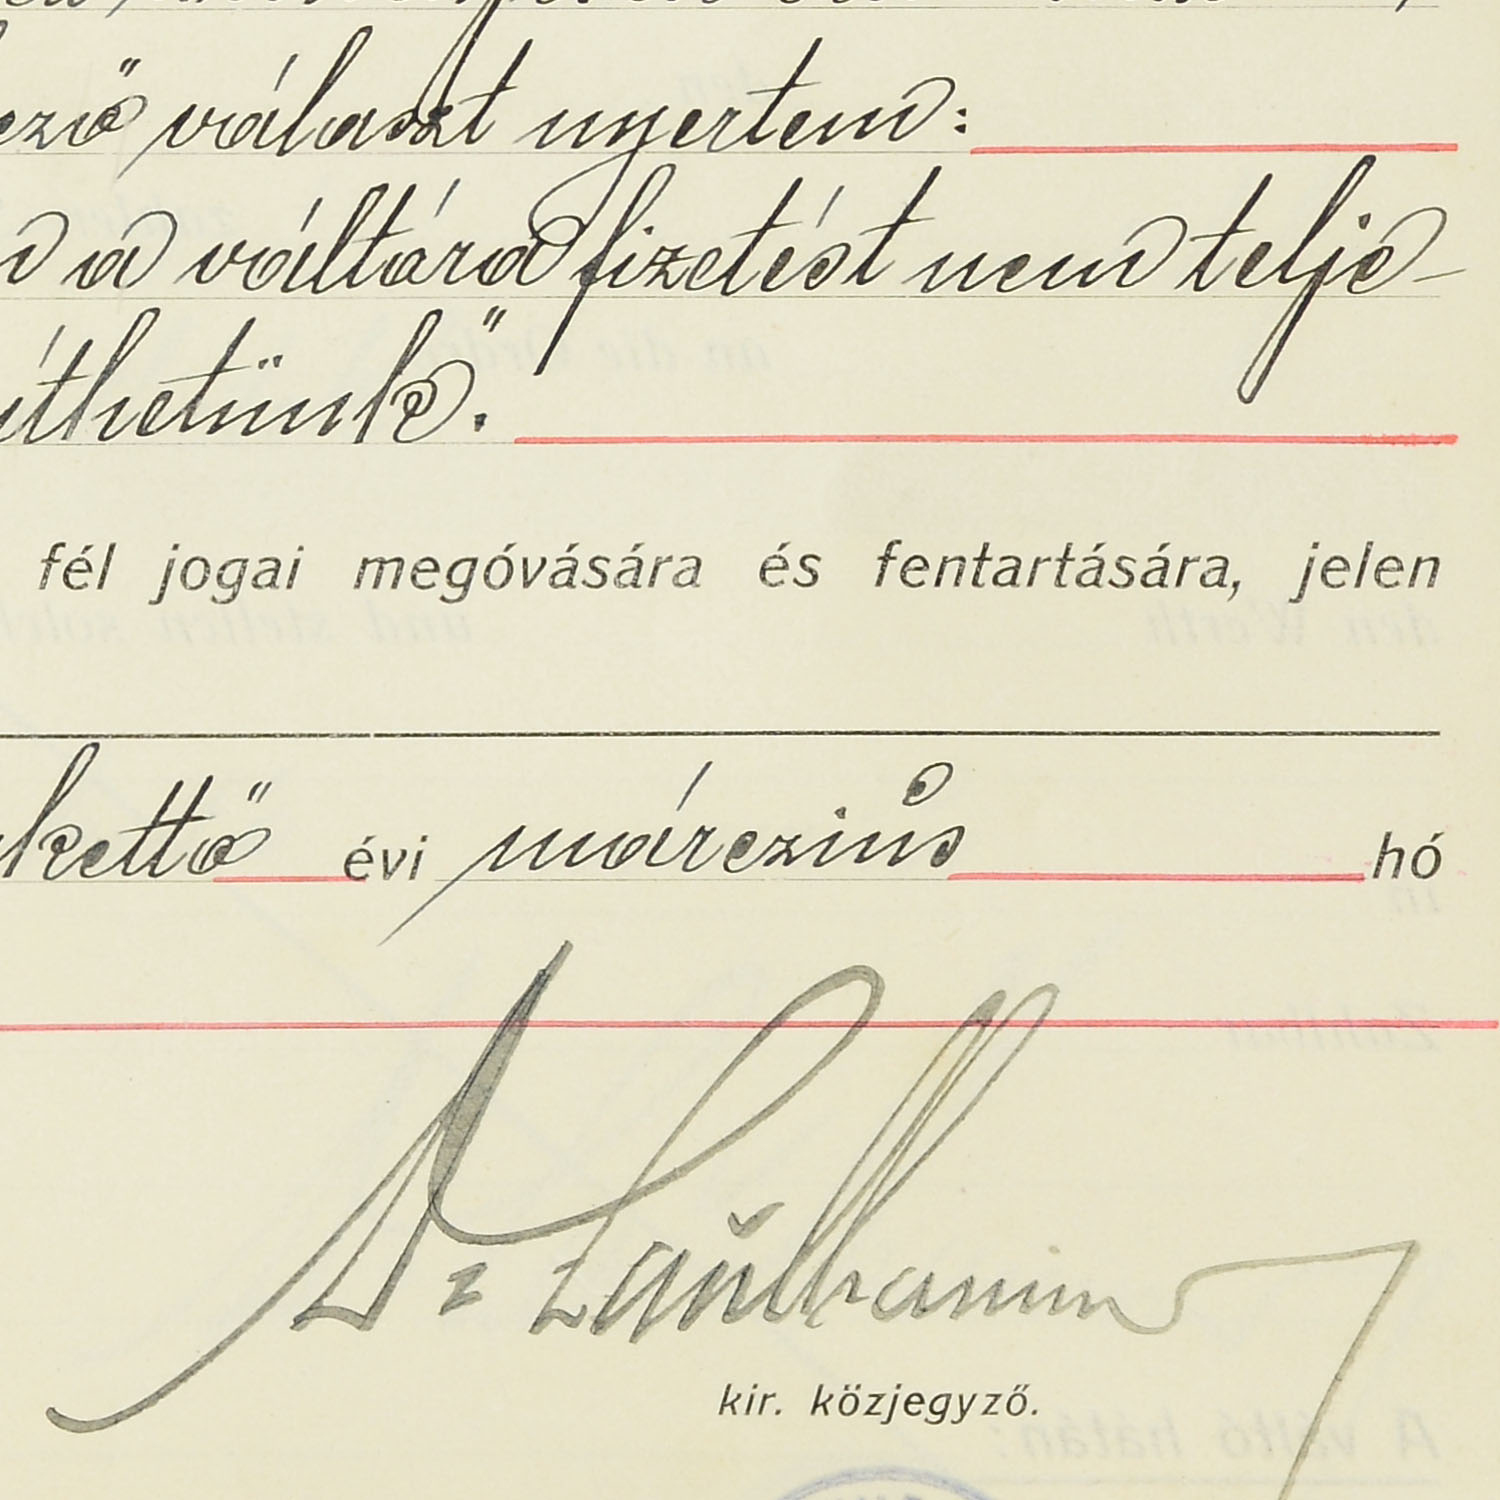 ező választ nyertem:
a váltóra fizetést nem telje-
íthetünk".
fél jogai megóvására és fentartására, jelen
kettő évi márczius hó
Dr
kir. közjegyző.